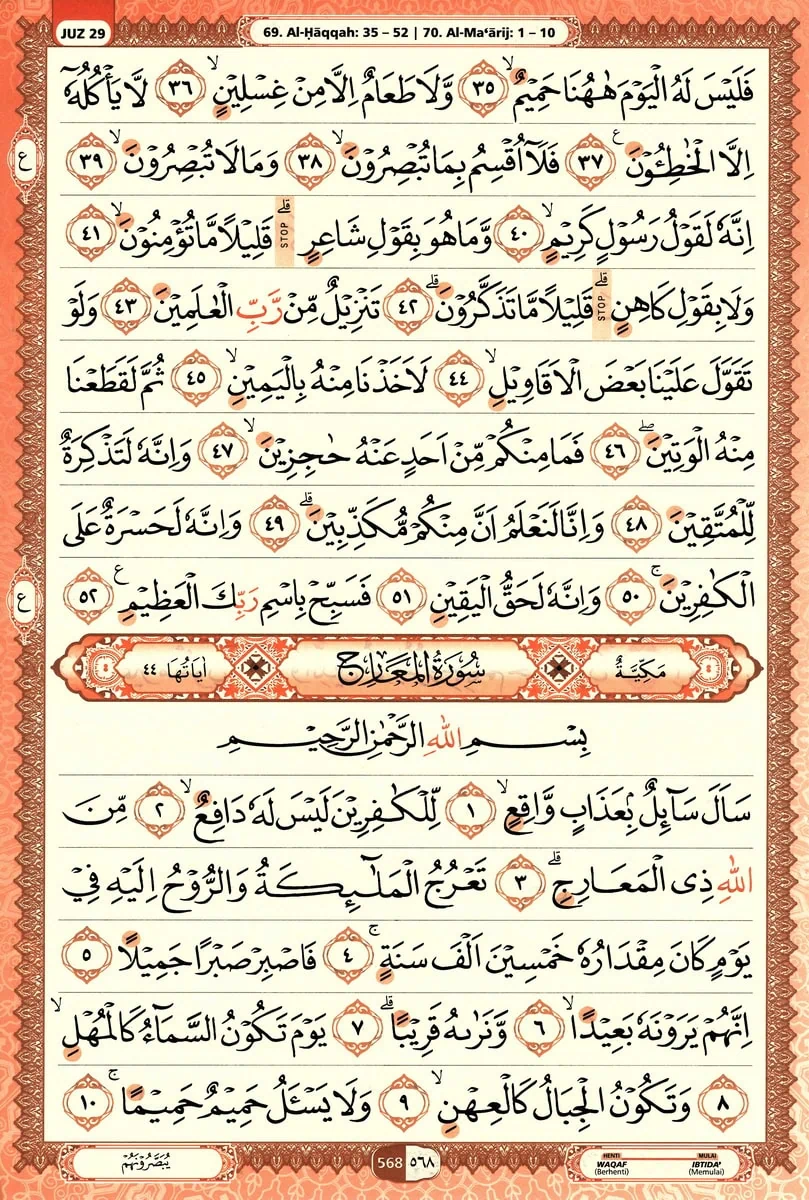 JUZ 29
69. Al-Ḥāqqah: 35 – 52 | 70. Al-Ma‘ārij: 1 – 10
فَلَيْسَ لَهُ الْيَوْمَ هٰهُنَا حَمِيْمٌۙ ٣٥ وَّلَا طَعَامٌ اِلَّا مِنْ غِسْلِيْنٍۙ ٣٦ لَّا يَأْكُلُهٗٓ
اِلَّا الْخٰطِـُٔوْنَ ࣖ ٣٧ فَلَآ اُقْسِمُ بِمَا تُبْصِرُوْنَۙ ٣٨ وَمَا لَا تُبْصِرُوْنَۙ ٣٩
اِنَّهٗ لَقَوْلُ رَسُوْلٍ كَرِيْمٍۙ ٤٠ وَّمَا هُوَ بِقَوْلِ شَاعِرٍۗ STOP قَلِيْلًا مَّا تُؤْمِنُوْنَۙ ٤١
وَلَا بِقَوْلِ كَاهِنٍۗ STOP قَلِيْلًا مَّا تَذَكَّرُوْنَۗ ٤٢ تَنْزِيْلٌ مِّنْ رَّبِّ الْعٰلَمِيْنَ ٤٣ وَلَوْ
تَقَوَّلَ عَلَيْنَا بَعْضَ الْاَقَاوِيْلِۙ ٤٤ لَاَخَذْنَا مِنْهُ بِالْيَمِيْنِۙ ٤٥ ثُمَّ لَقَطَعْنَا
مِنْهُ الْوَتِيْنَۖ ٤٦ فَمَا مِنْكُمْ مِّنْ اَحَدٍ عَنْهُ حٰجِزِيْنَۙ ٤٧ وَاِنَّهٗ لَتَذْكِرَةٌ
لِّلْمُتَّقِيْنَ ٤٨ وَاِنَّا لَنَعْلَمُ اَنَّ مِنْكُمْ مُّكَذِّبِيْنَۗ ٤٩ وَاِنَّهٗ لَحَسْرَةٌ عَلَى
الْكٰفِرِيْنَۚ ٥٠ وَاِنَّهٗ لَحَقُّ الْيَقِيْنِ ٥١ فَسَبِّحْ بِاسْمِ رَبِّكَ الْعَظِيْمِ ࣖ ٥٢
مَكِّيَّةٌ سُوْرَةُ الْمَعَارِجِ اٰيَاتُهَا ٤٤
بِسْمِ اللّٰهِ الرَّحْمٰنِ الرَّحِيْمِ
سَاَلَ سَاۤىِٕلٌۢ بِعَذَابٍ وَّاقِعٍۙ ١ لِّلْكٰفِرِيْنَ لَيْسَ لَهٗ دَافِعٌۙ ٢ مِّنَ
اللّٰهِ ذِى الْمَعَارِجِۗ ٣ تَعْرُجُ الْمَلٰۤىِٕكَةُ وَالرُّوْحُ اِلَيْهِ فِيْ
يَوْمٍ كَانَ مِقْدَارُهٗ خَمْسِيْنَ اَلْفَ سَنَةٍۚ ٤ فَاصْبِرْ صَبْرًا جَمِيْلًا ٥
اِنَّهُمْ يَرَوْنَهٗ بَعِيْدًاۙ ٦ وَّنَرٰىهُ قَرِيْبًاۗ ٧ يَوْمَ تَكُوْنُ السَّمَاۤءُ كَالْمُهْلِۙ
٨ وَتَكُوْنُ الْجِبَالُ كَالْعِهْنِۙ ٩ وَلَا يَسْـَٔلُ حَمِيْمٌ حَمِيْمًاۚ ١٠
ع
ع
يُبَصَّرُوْنَهُمْ
568 ٥٦٨
HENTI WAQAF (Berhenti)
MULAI IBTIDA’ (Memulai)